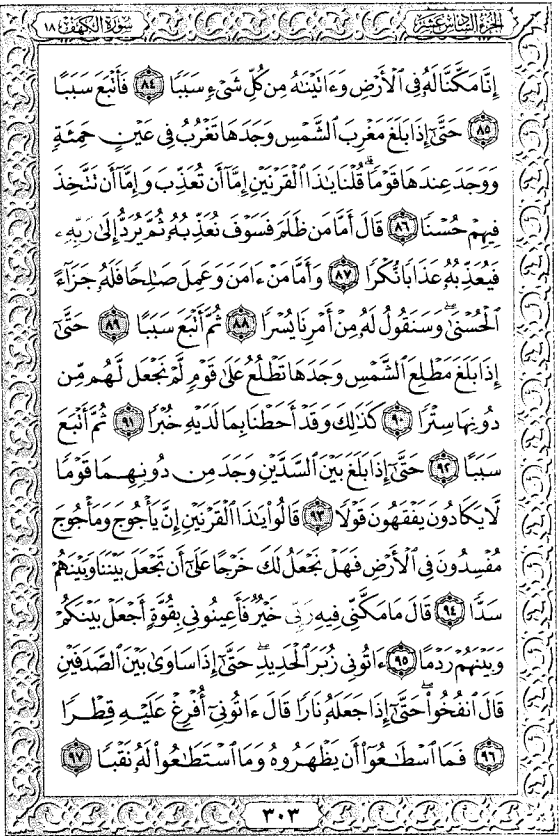 الجزء السادس عشر سورة الكهف ١٨
إِنَّا مَكَّنَّا لَهُۥ فِى ٱلْأَرْضِ وَءَاتَيْنَٰهُ مِن كُلِّ شَىْءٍ سَبَبًا ٨٤ فَأَتْبَعَ سَبَبًا
٨٥ حَتَّىٰٓ إِذَا بَلَغَ مَغْرِبَ ٱلشَّمْسِ وَجَدَهَا تَغْرُبُ فِى عَيْنٍ حَمِئَةٍ
وَوَجَدَ عِندَهَا قَوْمًاۗ قُلْنَا يَٰذَا ٱلْقَرْنَيْنِ إِمَّآ أَن تُعَذِّبَ وَإِمَّآ أَن تَتَّخِذَ
فِيهِمْ حُسْنًا ٨٦ قَالَ أَمَّا مَن ظَلَمَ فَسَوْفَ نُعَذِّبُهُۥ ثُمَّ يُرَدُّ إِلَىٰ رَبِّهِۦ
فَيُعَذِّبُهُۥ عَذَابًا نُّكْرًا ٨٧ وَأَمَّا مَنْ ءَامَنَ وَعَمِلَ صَٰلِحًا فَلَهُۥ جَزَآءً
ٱلْحُسْنَىٰۖ وَسَنَقُولُ لَهُۥ مِنْ أَمْرِنَا يُسْرًا ٨٨ ثُمَّ أَتْبَعَ سَبَبًا ٨٩ حَتَّىٰٓ
إِذَا بَلَغَ مَطْلِعَ ٱلشَّمْسِ وَجَدَهَا تَطْلُعُ عَلَىٰ قَوْمٍ لَّمْ نَجْعَل لَّهُم مِّن
دُونِهَا سِتْرًا ٩٠ كَذَٰلِكَ وَقَدْ أَحَطْنَا بِمَا لَدَيْهِ خُبْرًا ٩١ ثُمَّ أَتْبَعَ
سَبَبًا ٩٢ حَتَّىٰٓ إِذَا بَلَغَ بَيْنَ ٱلسَّدَّيْنِ وَجَدَ مِن دُونِهِمَا قَوْمًا
لَّا يَكَادُونَ يَفْقَهُونَ قَوْلًا ٩٣ قَالُوا۟ يَٰذَا ٱلْقَرْنَيْنِ إِنَّ يَأْجُوجَ وَمَأْجُوجَ
مُفْسِدُونَ فِى ٱلْأَرْضِ فَهَلْ نَجْعَلُ لَكَ خَرْجًا عَلَىٰٓ أَن تَجْعَلَ بَيْنَنَا وَبَيْنَهُمْ
سَدًّا ٩٤ قَالَ مَا مَكَّنِّى فِيهِ رَبِّى خَيْرٌ فَأَعِينُونِى بِقُوَّةٍ أَجْعَلْ بَيْنَكُمْ
وَبَيْنَهُمْ رَدْمًا ٩٥ ءَاتُونِى زُبَرَ ٱلْحَدِيدِۖ حَتَّىٰٓ إِذَا سَاوَىٰ بَيْنَ ٱلصَّدَفَيْنِ
قَالَ ٱنفُخُوا۟ۖ حَتَّىٰٓ إِذَا جَعَلَهُۥ نَارًا قَالَ ءَاتُونِىٓ أُفْرِغْ عَلَيْهِ قِطْرًا
٩٦ فَمَا ٱسْطَٰعُوٓا۟ أَن يَظْهَرُوهُ وَمَا ٱسْتَطَٰعُوا۟ لَهُۥ نَقْبًا ٩٧
٣٠٣